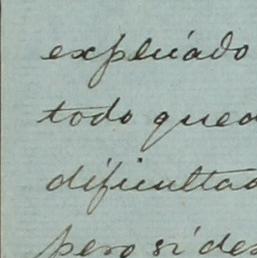 explicado
todo qued
dificultad
pero si des